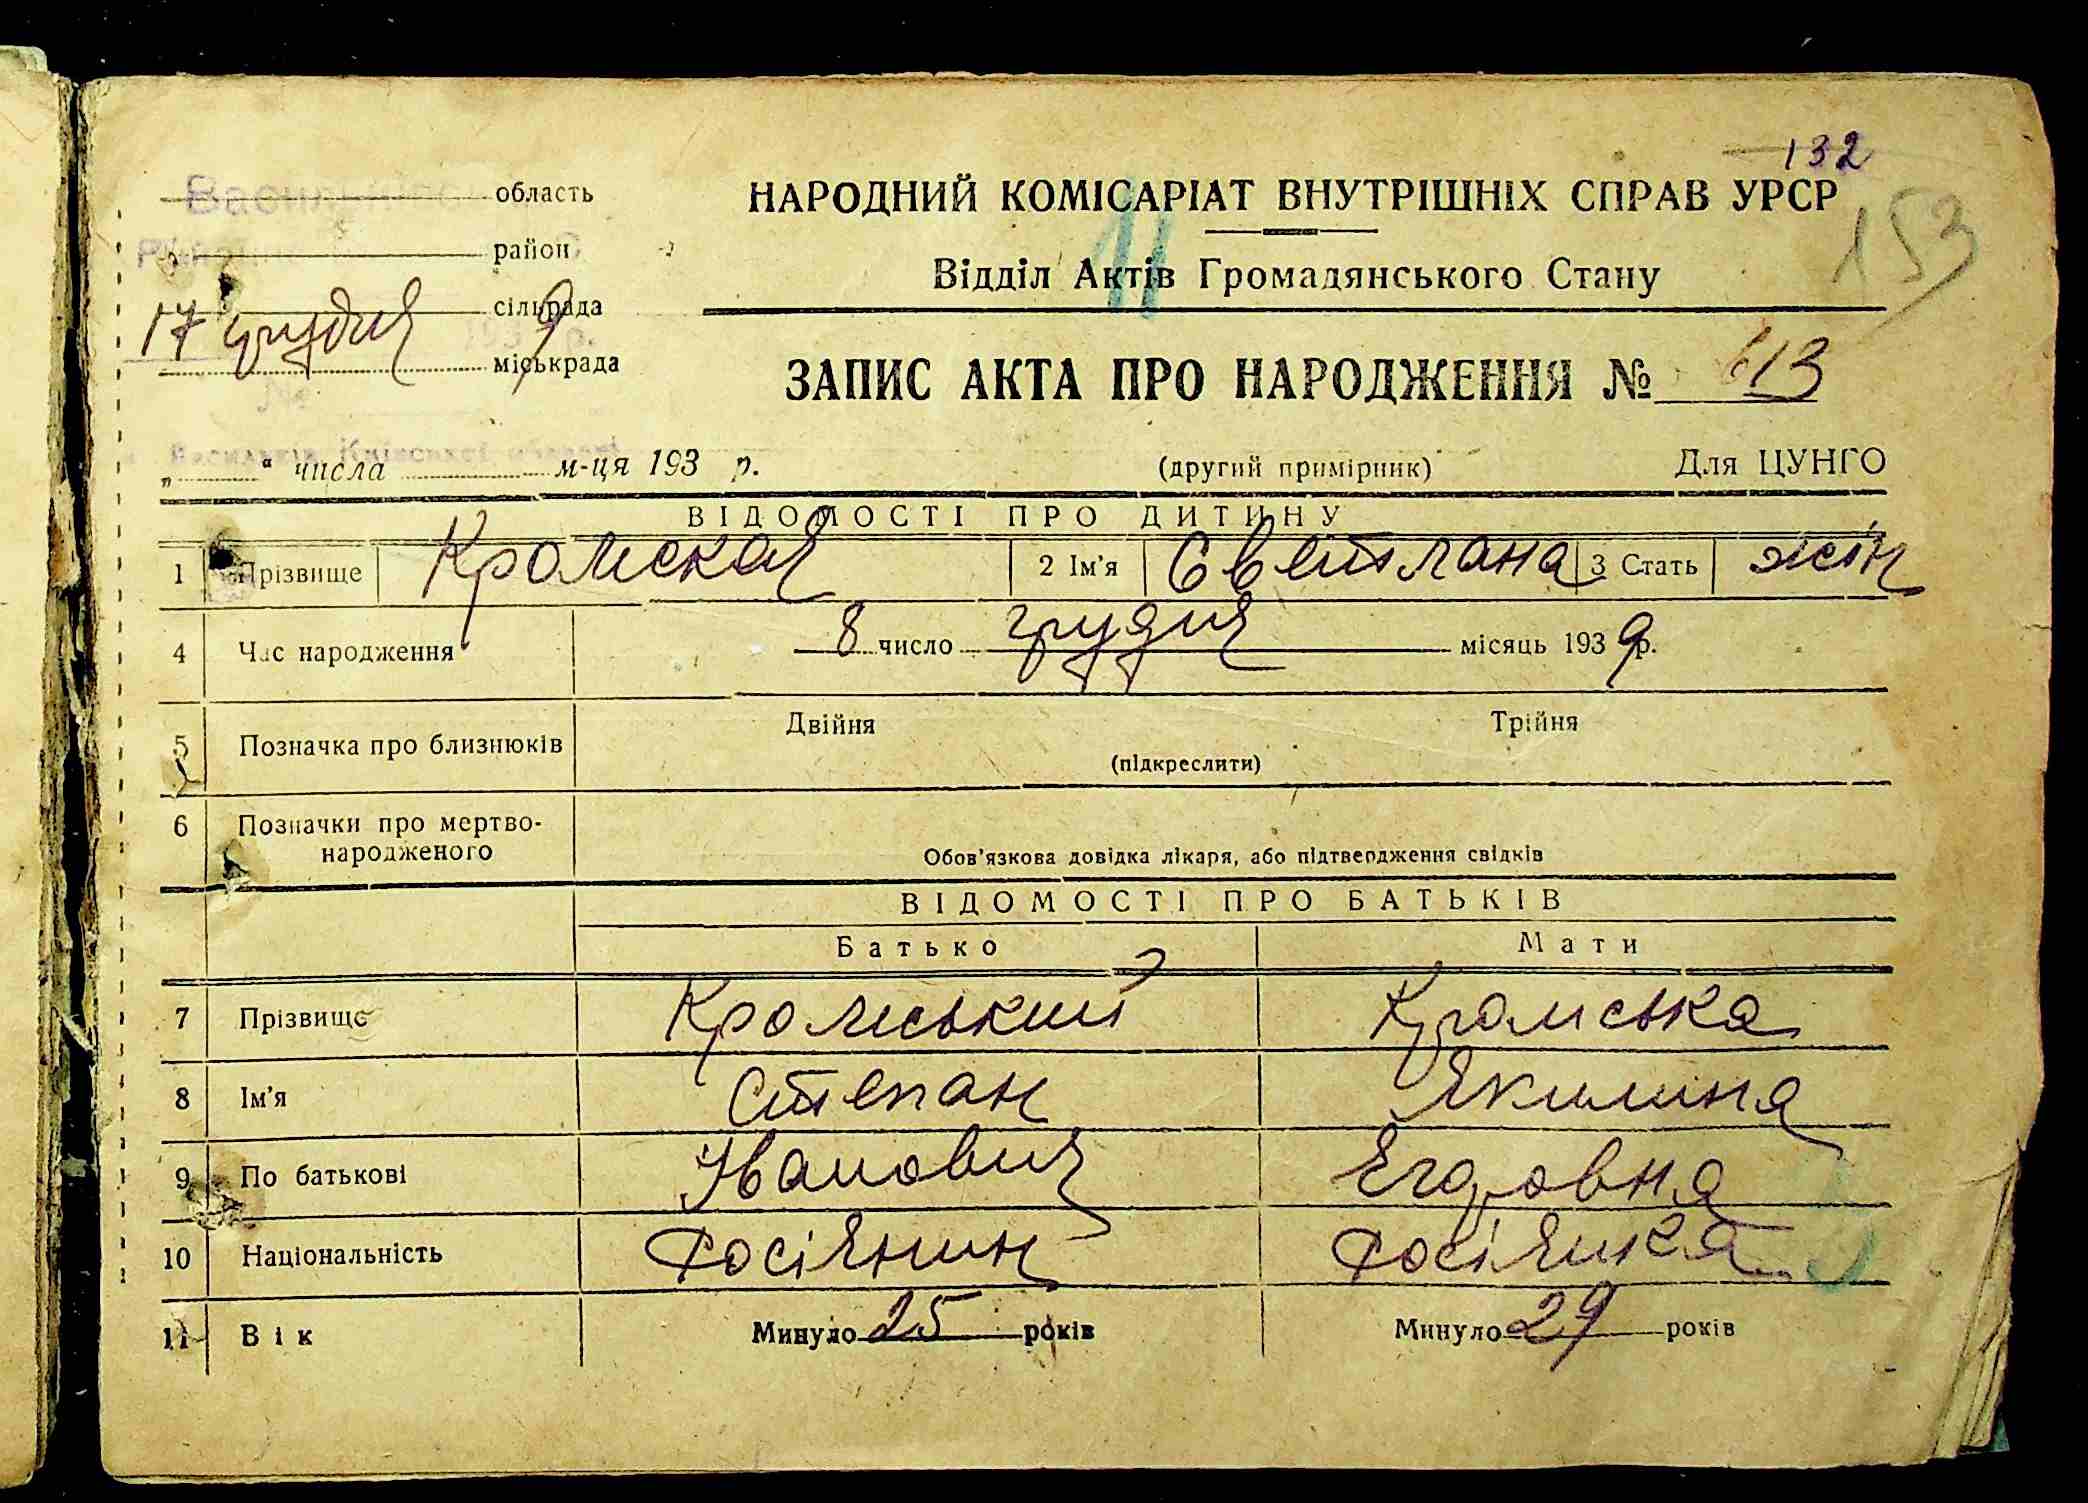 132
153
область
район
сільрада
17 грудня 9
міськрада
НАРОДНИЙ КОМІСАРІАТ ВНУТРІШНІХ СПРАВ УРСР
11
Відділ Актів Громадянського Стану
ЗАПИС АКТА ПРО НАРОДЖЕННЯ № 613
Васильків Київської області
„ “ числа м-ця 193 р.
(другий примірник)
Для ЦУНГО
ВІДОМОСТІ ПРО ДИТИНУ
1 Прізвище Кромская 2 Ім'я Светлана 3 Стать жін
4 Час народження 8 число грудня місяць 1939 р.
5 Позначка про близнюків Двійня Трійня
(підкреслити)
6 Позначки про мертво-
народженого
Обов'язкова довідка лікаря, або підтвердження свідків
ВІДОМОСТІ ПРО БАТЬКІВ
Батько Мати
7 Прізвище Кромський Кромська
8 Ім'я Степан Якилина
9 По батькові Иванович Егоровна
10 Національність Росіянин Росіянка
11 Вік Минуло 25 років Минуло 29 років